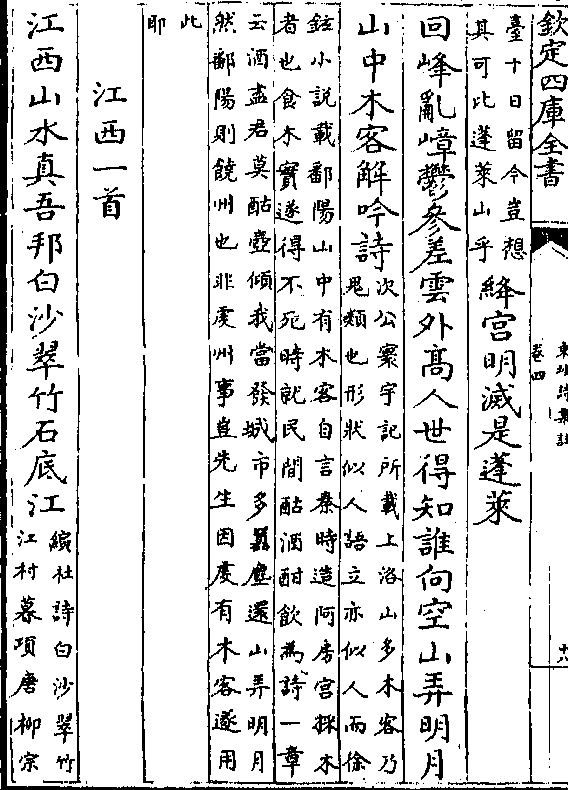 欽定四庫全書
東坡詩集註
卷四
十八
臺十日留今豈想
其可比蓬萊山乎
絳宮明滅是蓬萊
回峰亂嶂鬱參差雲外髙人世得知誰向空山弄明月
山中木客解吟詩
次公寰宇記所載上洛山多木客乃
鬼類也形狀似人語立亦似人而徐
鉉小説載鄱陽山中有木客自言秦時造阿房宮採木
者也食木實遂得不死時就民間酤酒酣飲為詩一章
云酒盡君莫酤壺傾我當發城市多囂塵還山弄明月
然鄱陽則饒州也非虔州事豈先生因虔有木客遂用
此
耶
江西一首
江西山水真吾邦白沙翠竹石底江
縯杜詩白沙翠竹
江村暮項唐柳宗